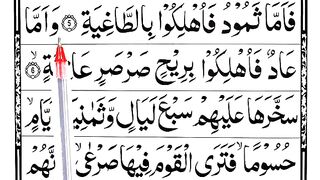 فَاَمَّا ثَمُوْدُ فَاُهْلِكُوْا بِالطَّاغِيَةِ ۝٥ وَاَمَّا
عَادٌ فَاُهْلِكُوْا بِرِيْحٍ صَرْصَرٍ ۝٦
سَخَّرَهَا عَلَيْهِمْ سَبْعَ لَيَالٍ
حُسُوْمًا ۙ فَتَرَى الْقَوْمَ فِيْهَا صَرْعٰى ۙ